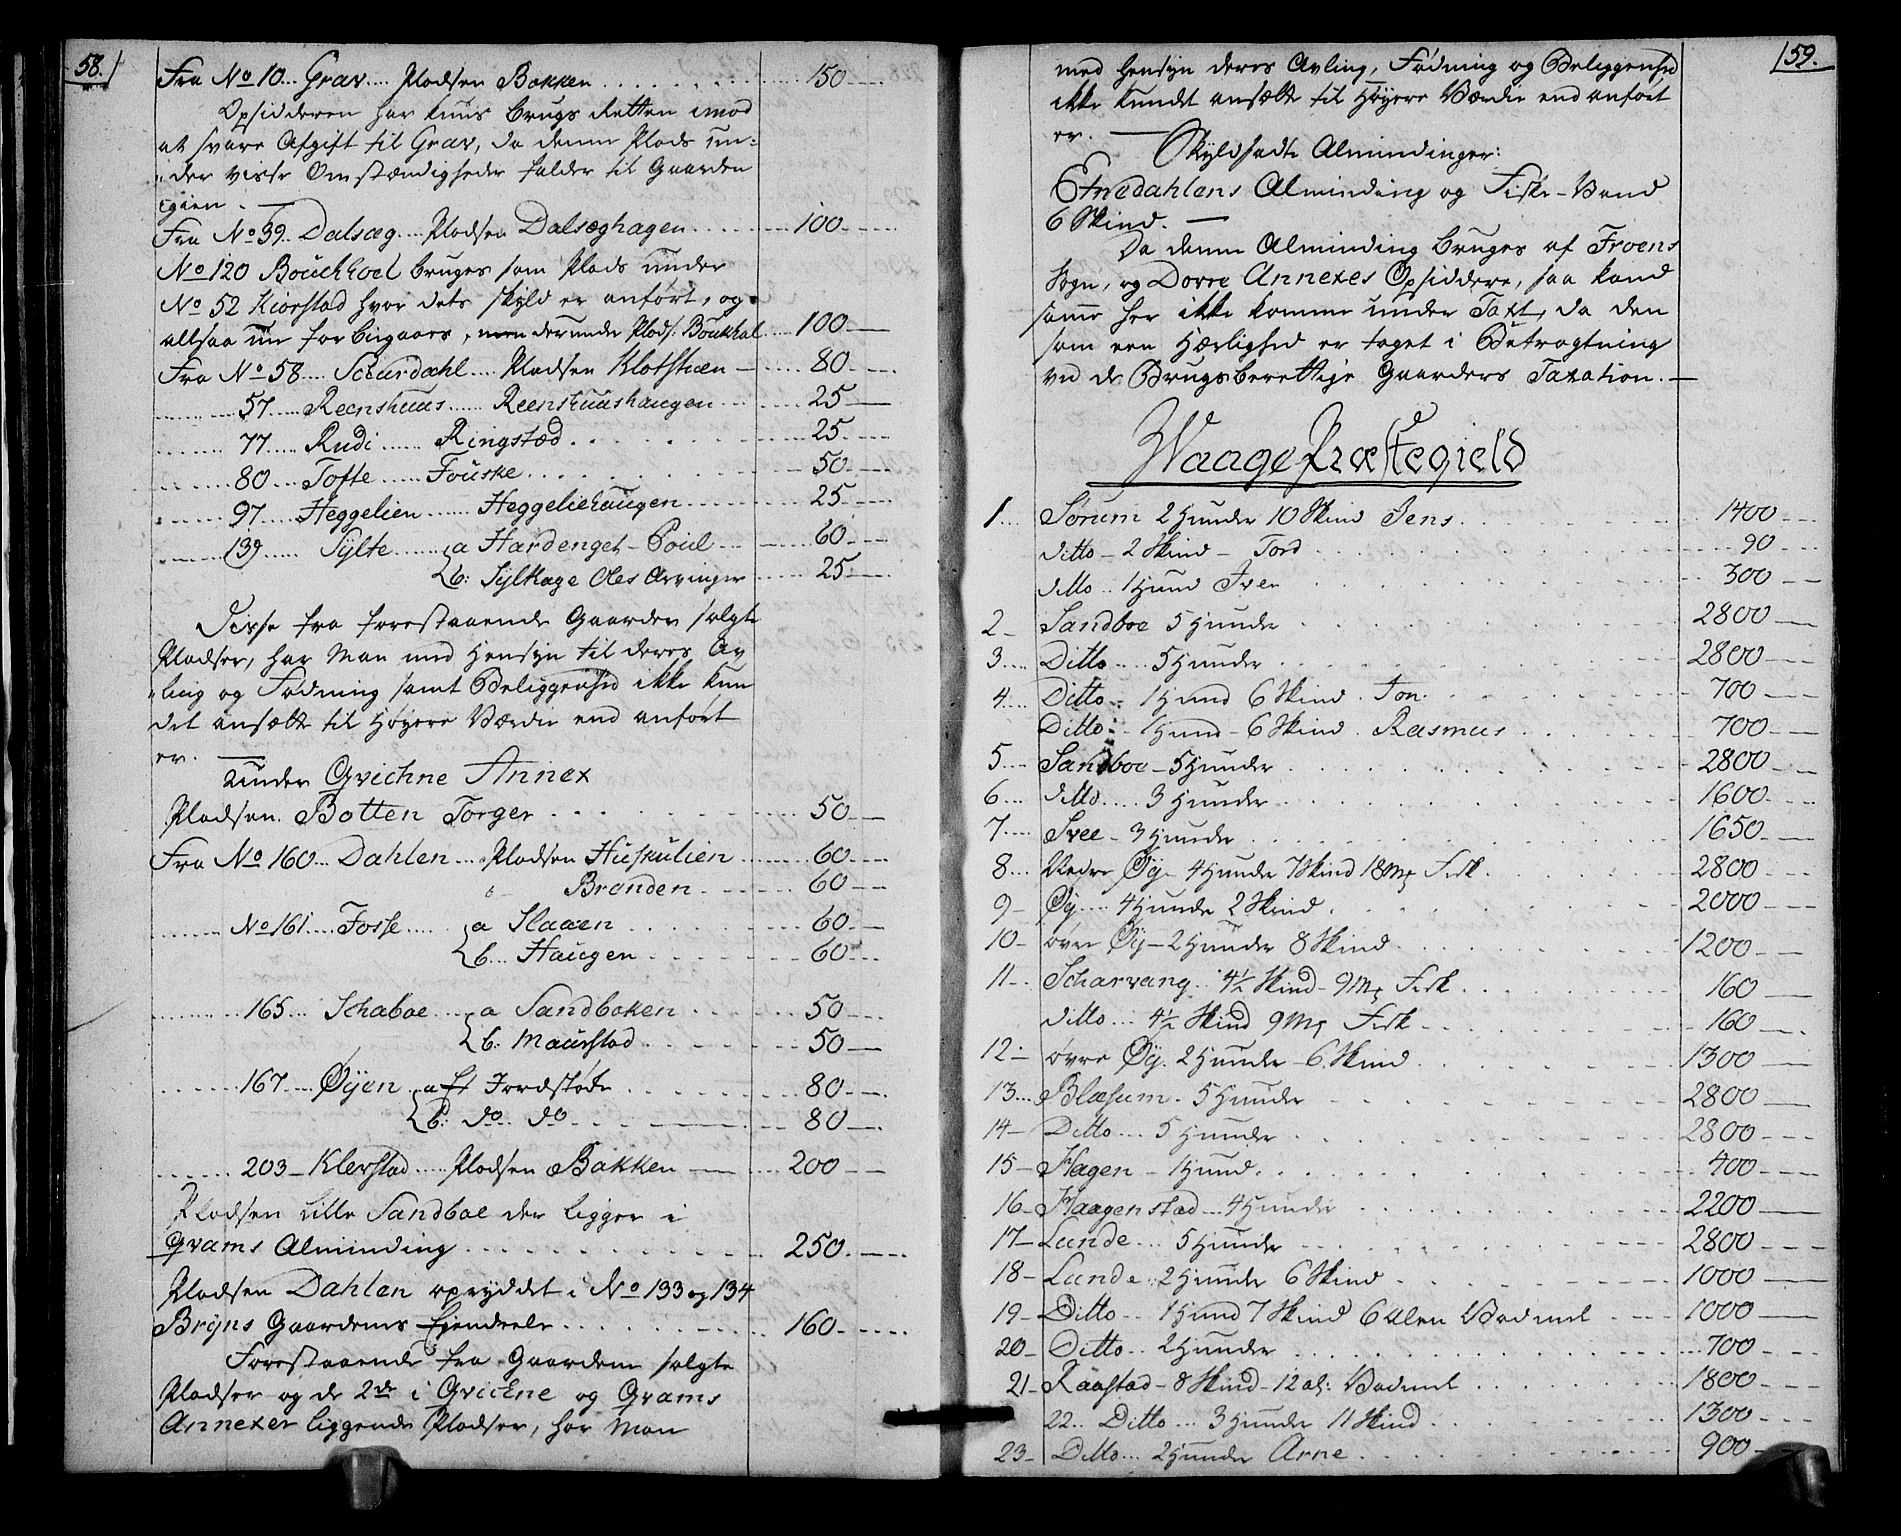 58.
Fra No 10... Grav.... Pladsen Bakken . . . . . . . . 150
Opsidderen har kuns Brugs Retten imod
at svare Afgift til Grav, da denne Plads un-
der visse Omstændigheder falder til Gaarden
igien. —
Fra No 39.. Dalsæg.... Pladsen Dalsæghagen . . . . . 100
No 120 Bouchhoel bruges som Plads under
No 52 Kiorstad hvor dets Skyld er anført, og
altsaa un forbigaaes, men derunder Plads: Boukhol .... 100
Fra No 58.... Schurdahl .... Pladsen Klotstuen — 80
57..... Reenshuus ...... Reenshuushaugen . . . . 25
77..... Rudi ...... Ringstad . . . . 25
80.... Tofte ...... Fouske . . . . 50
97.... Heggelien ...... Heggeliehaugen . . . . 25
139..... Sylte ....... a Hardenget-Poul . . . 60
b: Syltkage Oles Arvinger . . . 25
Disse fra forestaaende Gaarder solgte
Pladser, har Man med Hensyn til deres Av
ling og Fødning samt Beliggenhed ikke kun
det ansætte til høyere Værdie end anført
er. —
Under Qvichne Annex
Pladsen Botten Torger . . . . . 50
Fra No 160... Dahlen.... Pladsen Huskulien . . . . 60
Branden . . . . 60
No 161.... Fosse..... a Slaaen . . . . 60
b... Haugen . . . . 60
165... Schaboe .... a Sandbaken . . . . 50
b: Maurstad . . . . 50
167.... Øyen . a Et Jordstøde . . . . 80
b: do do . . . . 80
203 — Klevstad ..... Pladsen Bakken — 200
Pladsen Lille Sandboe der ligger i
Qvams Alminding . . . . 250
Pladsen Dahlen opryddet i No 133 og 134
Bryns Gaardenes Eiendeele . . . . 160
Forestaaende fra Gaardene solgte
Pladser og de 2de i Qvichne og Qvams
Annexer liggende Pladser, har Man
59.
med Hensyn deres Avling, Fødning og Beliggenhed
ikke kundet ansætte til høyere Værdie end anført
er. —
Skyldsadte Almindinger:
Etnedahlens Alminding og Fiske-Vand
6 Skind. —
Da denne Alminding bruges af Froens
Sogn, og Dovre Annexes Opsiddere, saa kand
samme her ikke komme under Taxt, da den
som een Herlighed er taget i Betragtning
ved de Brugsberettige Gaarders Taxation. —
Waage Præstegield
1.... Sørum 2 Hunder 10 Skind Jens . . . 1400
ditto — 2 Skind — Tord . . . 90
ditto .. 1 Hund Iver . . . 300
2 — Sandboe 5 Hunder . . . 2800
3.... Ditto..... 5 Hunder . . . 2800
4.... Ditto — 1 Hund 6 Skind . Jon . . . 700
Ditto.. 1 Hund — 6 Skind . Rasmus . . . 700
5.... Sandboe — 5 Hunder . . . 2800
6... ditto..... 3 Hunder . . . 1600
7.... Svee — 3 Hunder . . . 1650
8... Nedre Øy — 4 Hunder 7 Skind 18 Mk Fisk . . . 2800
9 — Øy .... 4 Hunder 2 Skind . . . 2000
10 — øvre Øy — 2 Hunder 8 Skind . . . 1200
11 — Scharvang .. 4½ Skind — 9 Mk Fisk . . . 160
ditto ... 4½ Skind 9 Mk Fisk . . . 160
12 — øvre Øy . 2 Hunder — 6 Skind . . . 1300
13... Blæsum . 5 Hunder . . . 2800
14 — Ditto .... 5 Hunder . . . 2800
15 — Hagen — 1 Hund . . . 400
16 — Haagenstad ... 4 Hunder . . . 2200
17 — Lunde .... 5 Hunder . . . 2800
18 — Lunde . 2 Hunder 6 Skind . . . 1000
19 — Ditto .. 1 Hund 7 Skind 6 Alen Vadmel . . . 1000
20 — Ditto .. 2 Hunder . . . 700
21 — Raastad — 8 Skind — 12 al: Vadmel . . . 1800
22.. Ditto ... 3 Hunder 11 Skind . . . 1300
23 — Ditto ... 2 Hunder Arne . . . 900